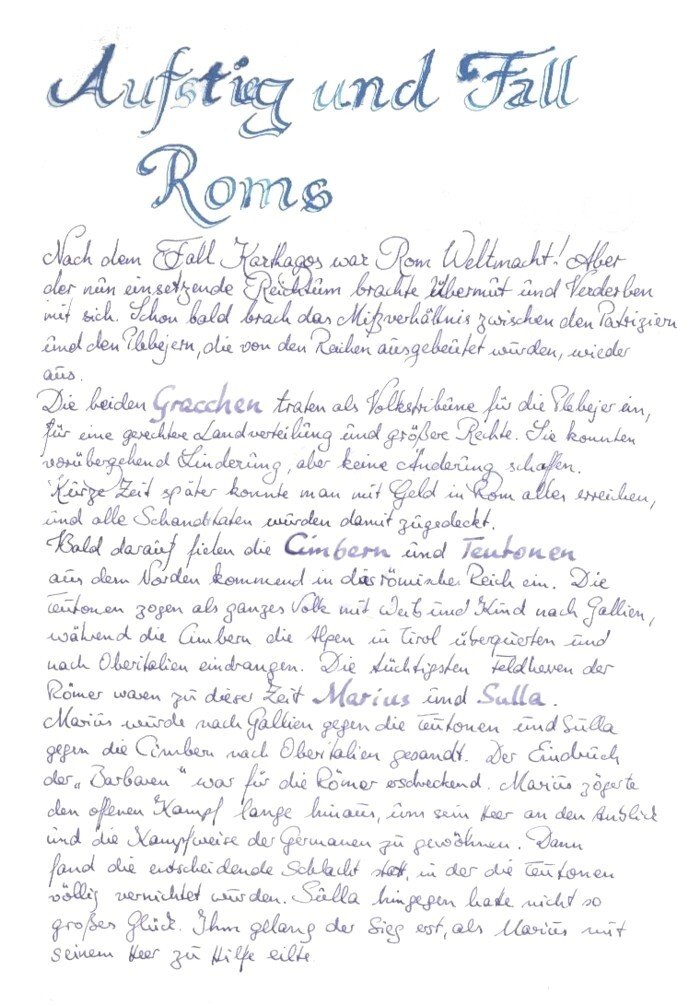 Aufstieg und Fall
Roms
Nach dem Fall Karthagos war Rom Weltmacht! Aber
der nun einsetzende Reichtum brachte Übermut und Verderben
mit sich. Schon bald brach das Mißverhältnis zwischen den Patriziern
und den Plebejern, die von den Reichen ausgebeutet wurden, wieder
aus.
Die beiden Gracchen traten als Volkstribune für die Plebejer ein,
für eine gerechtere Landverteilung und größere Rechte. Sie konnten
vorübergehend Linderung, aber keine Änderung schaffen.
Kurze Zeit später konnte man mit Geld in Rom alles erreichen,
und alle Schandtaten wurden damit zugedeckt.
Bald darauf fielen die Cimbern und Teutonen
aus dem Norden kommend in das römische Reich ein. Die
Teutonen zogen als ganzes Volk mit Weib und Kind nach Gallien,
während die Cimbern die Alpen in Tirol überquerten und
nach Oberitalien eindrangen. Die tüchtigsten Feldherren der
Römer waren zu dieser Zeit Marius und Sulla.
Marius wurde nach Gallien gegen die Teutonen und Sulla
gegen die Cimbern nach Oberitalien gesandt. Der Eindruck
der „Barbaren“ war für die Römer erschreckend. Marius zögerte
den offenen Kampf lange hinaus, um sein Heer an den Anblick
und die Kampfweise der Germanen zu gewöhnen. Dann
fand die entscheidende Schlacht statt, in der die Teutonen
völlig vernichtet wurden. Sulla hingegen hatte nicht so
großes Glück. Ihm gelang der Sieg erst, als Marius mit
seinem Heer zu Hilfe eilte.